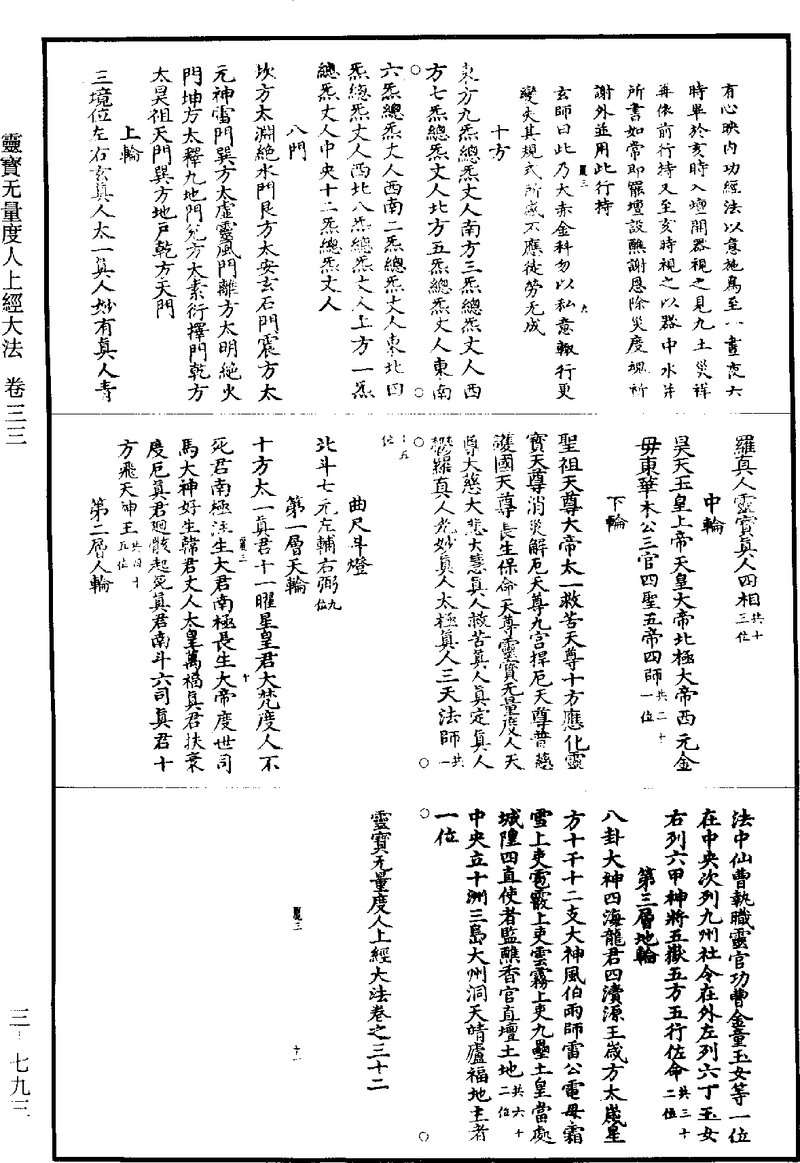 靈寶无量度人上經大法 卷三三
三-七九三
有心映内功經法以意施爲至一晝夜六
時畢於亥時入壇開器視之見九土災祥
再依前行持又至亥時視之以器中水并
所書如常即羅壇設醮謝恩除災度魂祈
謝外並用此行持
玄師曰此乃大赤金科勿以私意輙行更
變失其規式所感不應徒勞无成
十方
東方九炁總炁丈人南方三炁總炁丈人西
方七炁總炁丈人北方五炁總炁丈人東南
六炁總炁丈人西南二炁總炁丈人東北四
炁總炁丈人西北八炁總炁丈人上方一炁
總炁丈人中央十二炁總炁丈人
八門
坎方太淵絶水門艮方太安玄石門震方太
元神雷門巽方太虛靈風門離方太明絶火
門坤方太釋九地門兊方太素衍擇門乾方
太昊祖天門巽方地戶乾方天門
上輪
三境位左右玄真人太一真人妙有真人青
羅真人靈寶真人四相共十三位
中輪
昊天玉皇上帝天皇大帝北極大帝西元金
母東華木公三官四聖五帝四師共二十一位
下輪
聖祖天尊大帝太一救苦天尊十方應化靈
寶天尊消災解厄天尊九宮捍厄天尊普慈
護國天尊長生保命天尊靈寶无量度人天
尊大慈大悲大慧真人救苦真人真定真人
欝羅真人光妙真人太極真人三天法師共一
十五位
曲尺斗燈
北斗七元左輔右弼九位
第一層天輪
十方太一真君十一曜星皇君大梵度人不
死君南極注生大君南極長生大帝度世司
馬大神好生韓君丈人太皇萬福真君扶衰
度厄真君廻骸起死真君南斗六司真君十
方飛天神王共四十五位
第二層人輪
法中仙曹執職靈官功曹金童玉女等一位
在中央次列九州社令在外左列六丁玉女
右列六甲神將五嶽五方五行佐命共三十二位
第三層地輪
八卦大神四海龍君四瀆源王歲方太歲星
方十干十二支大神風伯雨師雷公電母霜
雪上吏雹霰上吏雲霧上吏九壘土皇當處
城隍四直使者監醮香官直壇土地共六十二位
中央立十洲三島大州洞天靖廬福地主者
一位
靈寶无量度人上經大法卷之三十二